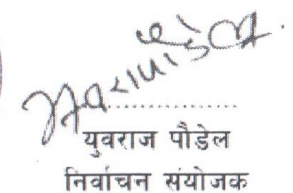 युवराज पौडेल
निर्वाचन संयोजक